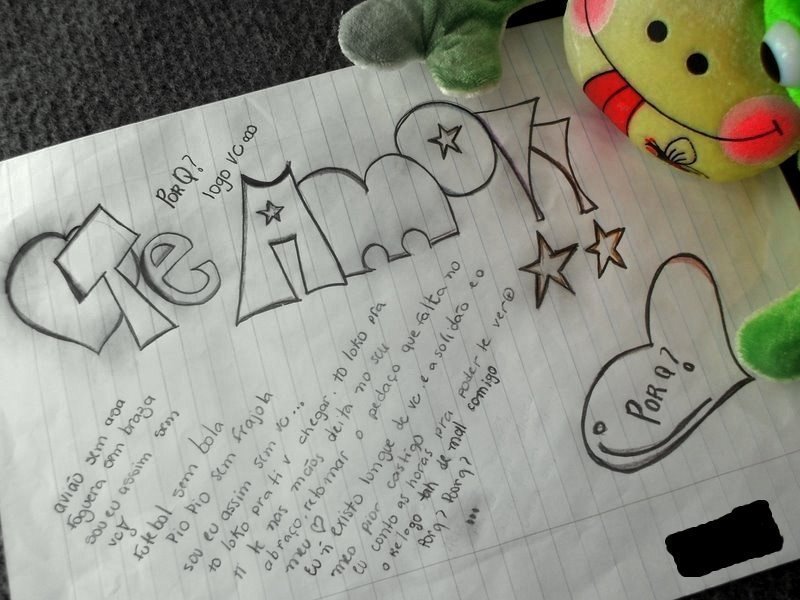 PORQ?
logo vc ∞
Te Amo
avião sem asa
foguera sem braza
sou eu assim sem
vc
futebol sem bola
Pio Pio sem frajola
sou eu assim sem vc...
to loko pra ti v chegar. to loko pra
ti te nas mãos deita no seu
abraço. retomar o pedaço que falta no
meu ♡
Eu ñ existo longe de vc. e a solidão e o
meo pior castigo
eu conto as horas pra poder te ver
o relogo tah de mal comigo
PorQ? PorQ?
...
PORQ?